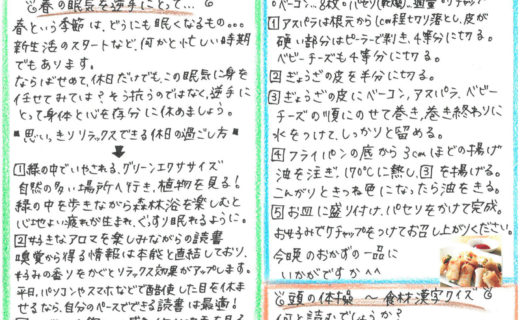 春の眠気を逆手にとって...
春という季節は、どうにも眠くなるもの。。。
新生活のスタートなど、何かと忙しい時期
でもあります。
ならばせめて、休日だけでも この眠気に身を
任せてみては？そう抗うのではなく、逆手に
とって身体と心を存分に休めましょう。
■思いっきりリラックスできる休日の過ごし方■
1 緑の中でいやされる、グリーンエクササイズ
自然の多い場所へ行き、植物を見る！
緑の中を歩きながら森林浴を楽しむと
心地よい疲れが生まれ、ぐっすり眠れるように。
2 好きなアロマを楽しみながらの読書
嗅覚から得る情報は本能と直結しており、
好みの香りをかぐとリラックス効果がアップします。
平日、パソコンやスマホなどで酷使した目を休ま
せるなら、自分のペースでできる読書は最適！
1 アスパラは根元から1cm程切り落とし、皮が
硬い部分はピーラーで剥き、4等分に切る。
ベビーチーズも4等分に切る。
2 ぎょうざの皮を半分に切る。
3 ぎょうざの皮にベーコン、アスパラ、ベビー
チーズの順にのせて巻き、巻き終わりに
水をつけて、しっかりと留める。
4 フライパンの底から3cmほどの揚げ
油を注ぎ、170℃に熱し、3を揚げる。
こんがりときつね色になったら油をきる。
5 お皿に盛り付け、パセリをかけて完成。
お好みでケチャップをつけてお召し上がりください。
今晩のおかずの一品に
いかがですか^^
頭の体操 〜食材漢字クイズ
何と読むでしょうか？